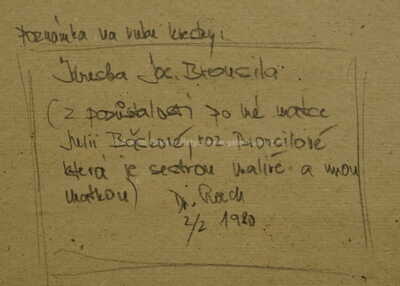 Poznámka na rubu kresby:
Kresba Joc. Broncila.
(z pozůstalosti po mé matce
Julii Báčkové, roz. Broncilové
která je sestrou malíře a mou
matkou)
Dr. Rach
2/2 1980